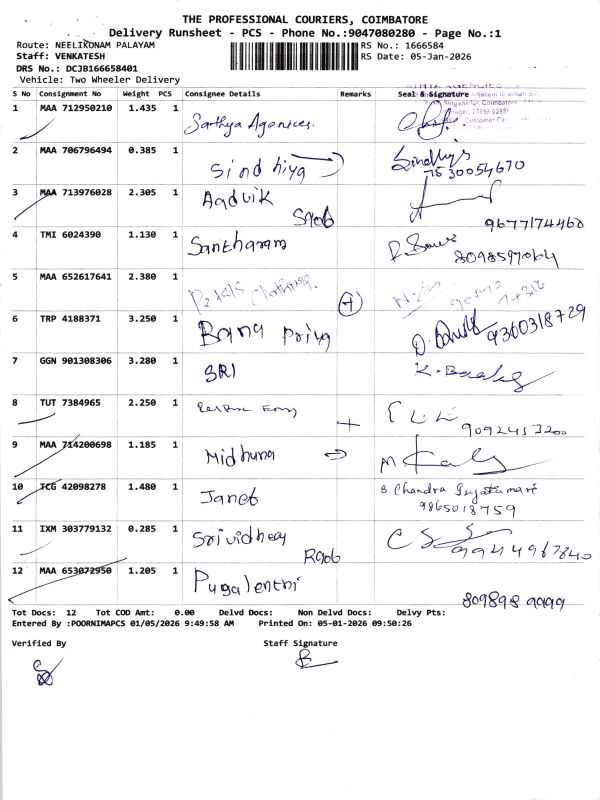 THE PROFESSIONAL COURIERS, COIMBATORE
Delivery Runsheet - PCS - Phone No.:9047080280 - Page No.:1
Route: NEELIKONAM PALAYAM
RS No.: 1666584
Staff: VENKATESH
RS Date: 05-Jan-2026
DRS No.: DCJB166658401
Vehicle: Two Wheeler Delivery
S No Consignment No Weight PCS Consignee Details Remarks Seal & Signature
1 MAA 712950210 1.435 1 Sathya Agenices.
2 MAA 706796494 0.385 1 Sindhiya Sindhiya
7530054670
3 MAA 713976028 2.305 1 Aadvik
9677174460
4 TMI 6024390 1.130 1 Santharam
8098597064
5 MAA 652617641 2.380 1 Petals Clothing.
6 TRP 4188371 3.250 1 Bana Priya
9360318729
7 GGN 901308306 3.280 1 SRI
8 TUT 7384965 2.250 1
9092453200
9 MAA 714200698 1.185 1 Midhuna
10 TCG 42098278 1.480 1 Janet S. Chandra
9865018759
11 IXM 303779132 0.285 1 Srividhey
9944967840
12 MAA 653072950 1.205 1 Pugalenthi
809898 9999
Tot Docs: 12 Tot COD Amt: 0.00 Delvd Docs: Non Delvd Docs: Delvy Pts:
Entered By :POORNIMAPCS 01/05/2026 9:49:58 AM Printed On: 05-01-2026 09:50:26
Verified By Staff Signature